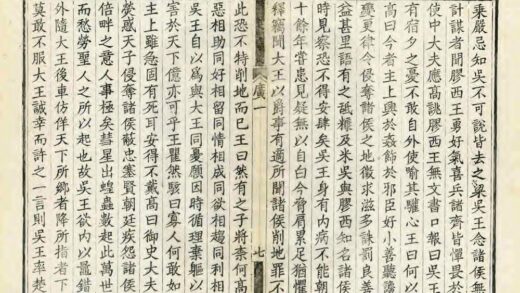 乘嚴忌知吳不可說皆去之梁吳王念諸侯
計謀者聞膠西王勇好氣喜兵諸齊皆憚畏於
使中大夫應高誂膠西王無文書口報曰吳王
有宿夕之憂不敢自外使喻其驩心王曰何以
高曰今者主上興於姦飾於邪臣好小善聽讒
變更律令侵奪諸侯之地徵求滋多誅罰良善
益甚里語有之舐糠及米吳與膠西知名諸侯
時見察恐不得安肆矣吳王身有內病不能朝
十餘年嘗患見疑無以自白今脅肩累足猶懼
釋竊聞大王以爵事有適所聞諸侯削地罪不
廣一 七
此恐不特削地而已王曰然有之子將柰何高
惡相助同好相留同情相成同欲相趨同利相
吳王自以為與大王同憂願因時循理棄軀以
害於天下億亦可乎王瞿然駭曰寡人何敢如
主上雖急固有死耳安得不戴高曰御史大夫
熒惑天子侵奪諸侯蔽忠塞賢朝廷疾怨諸侯
倍畔之意人事極矣彗星出蝗蟲數起此萬世
而愁勞聖人之所以起也故吳王欲內以鼂錯
外隨大王後車彷徉天下所鄉者降所指者下
莫敢不服大王誠幸而許之一言則吳王率楚